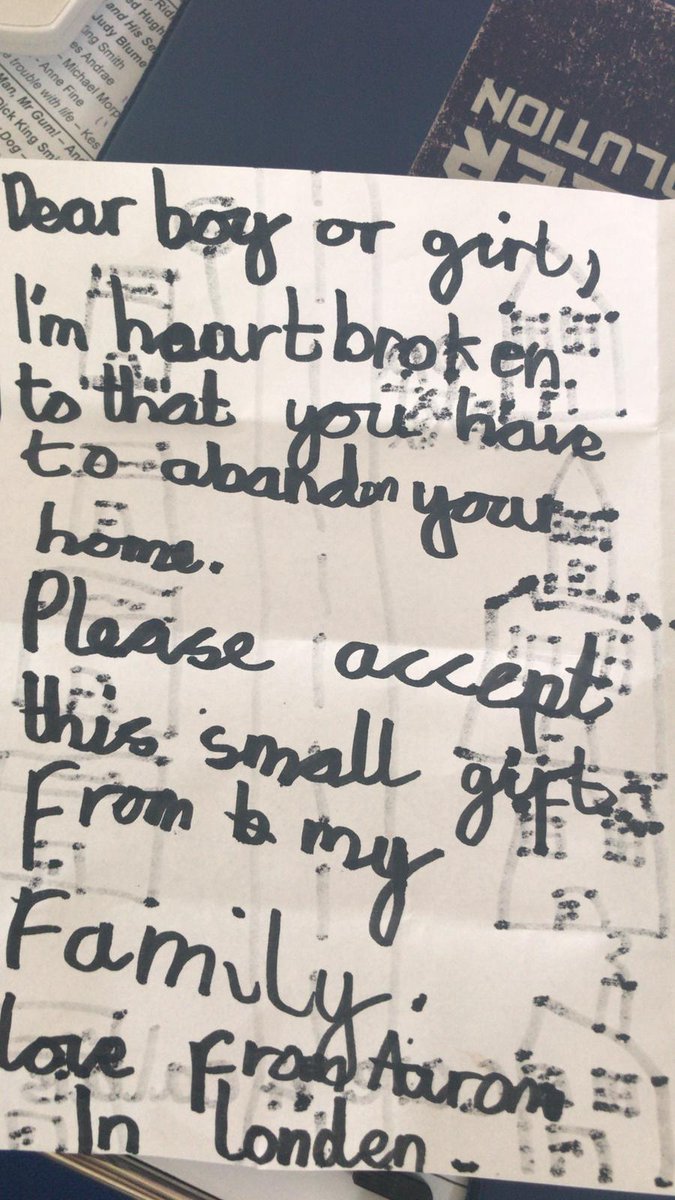 ed Hugh
and His Se
Judy Blume
ing Smith
es Andrae
- Michael Morp
- Anne Fine
trouble with life – Kes
Man, Mr Gum! – An
Dick King Smi
Dog -
ER
OLUTION
Dear boy or girl,
I'm heartbroken.
to that you have
to abandon your
home.
Please accept
this small gift
From b my
Family.
love from Aaron
In londen.